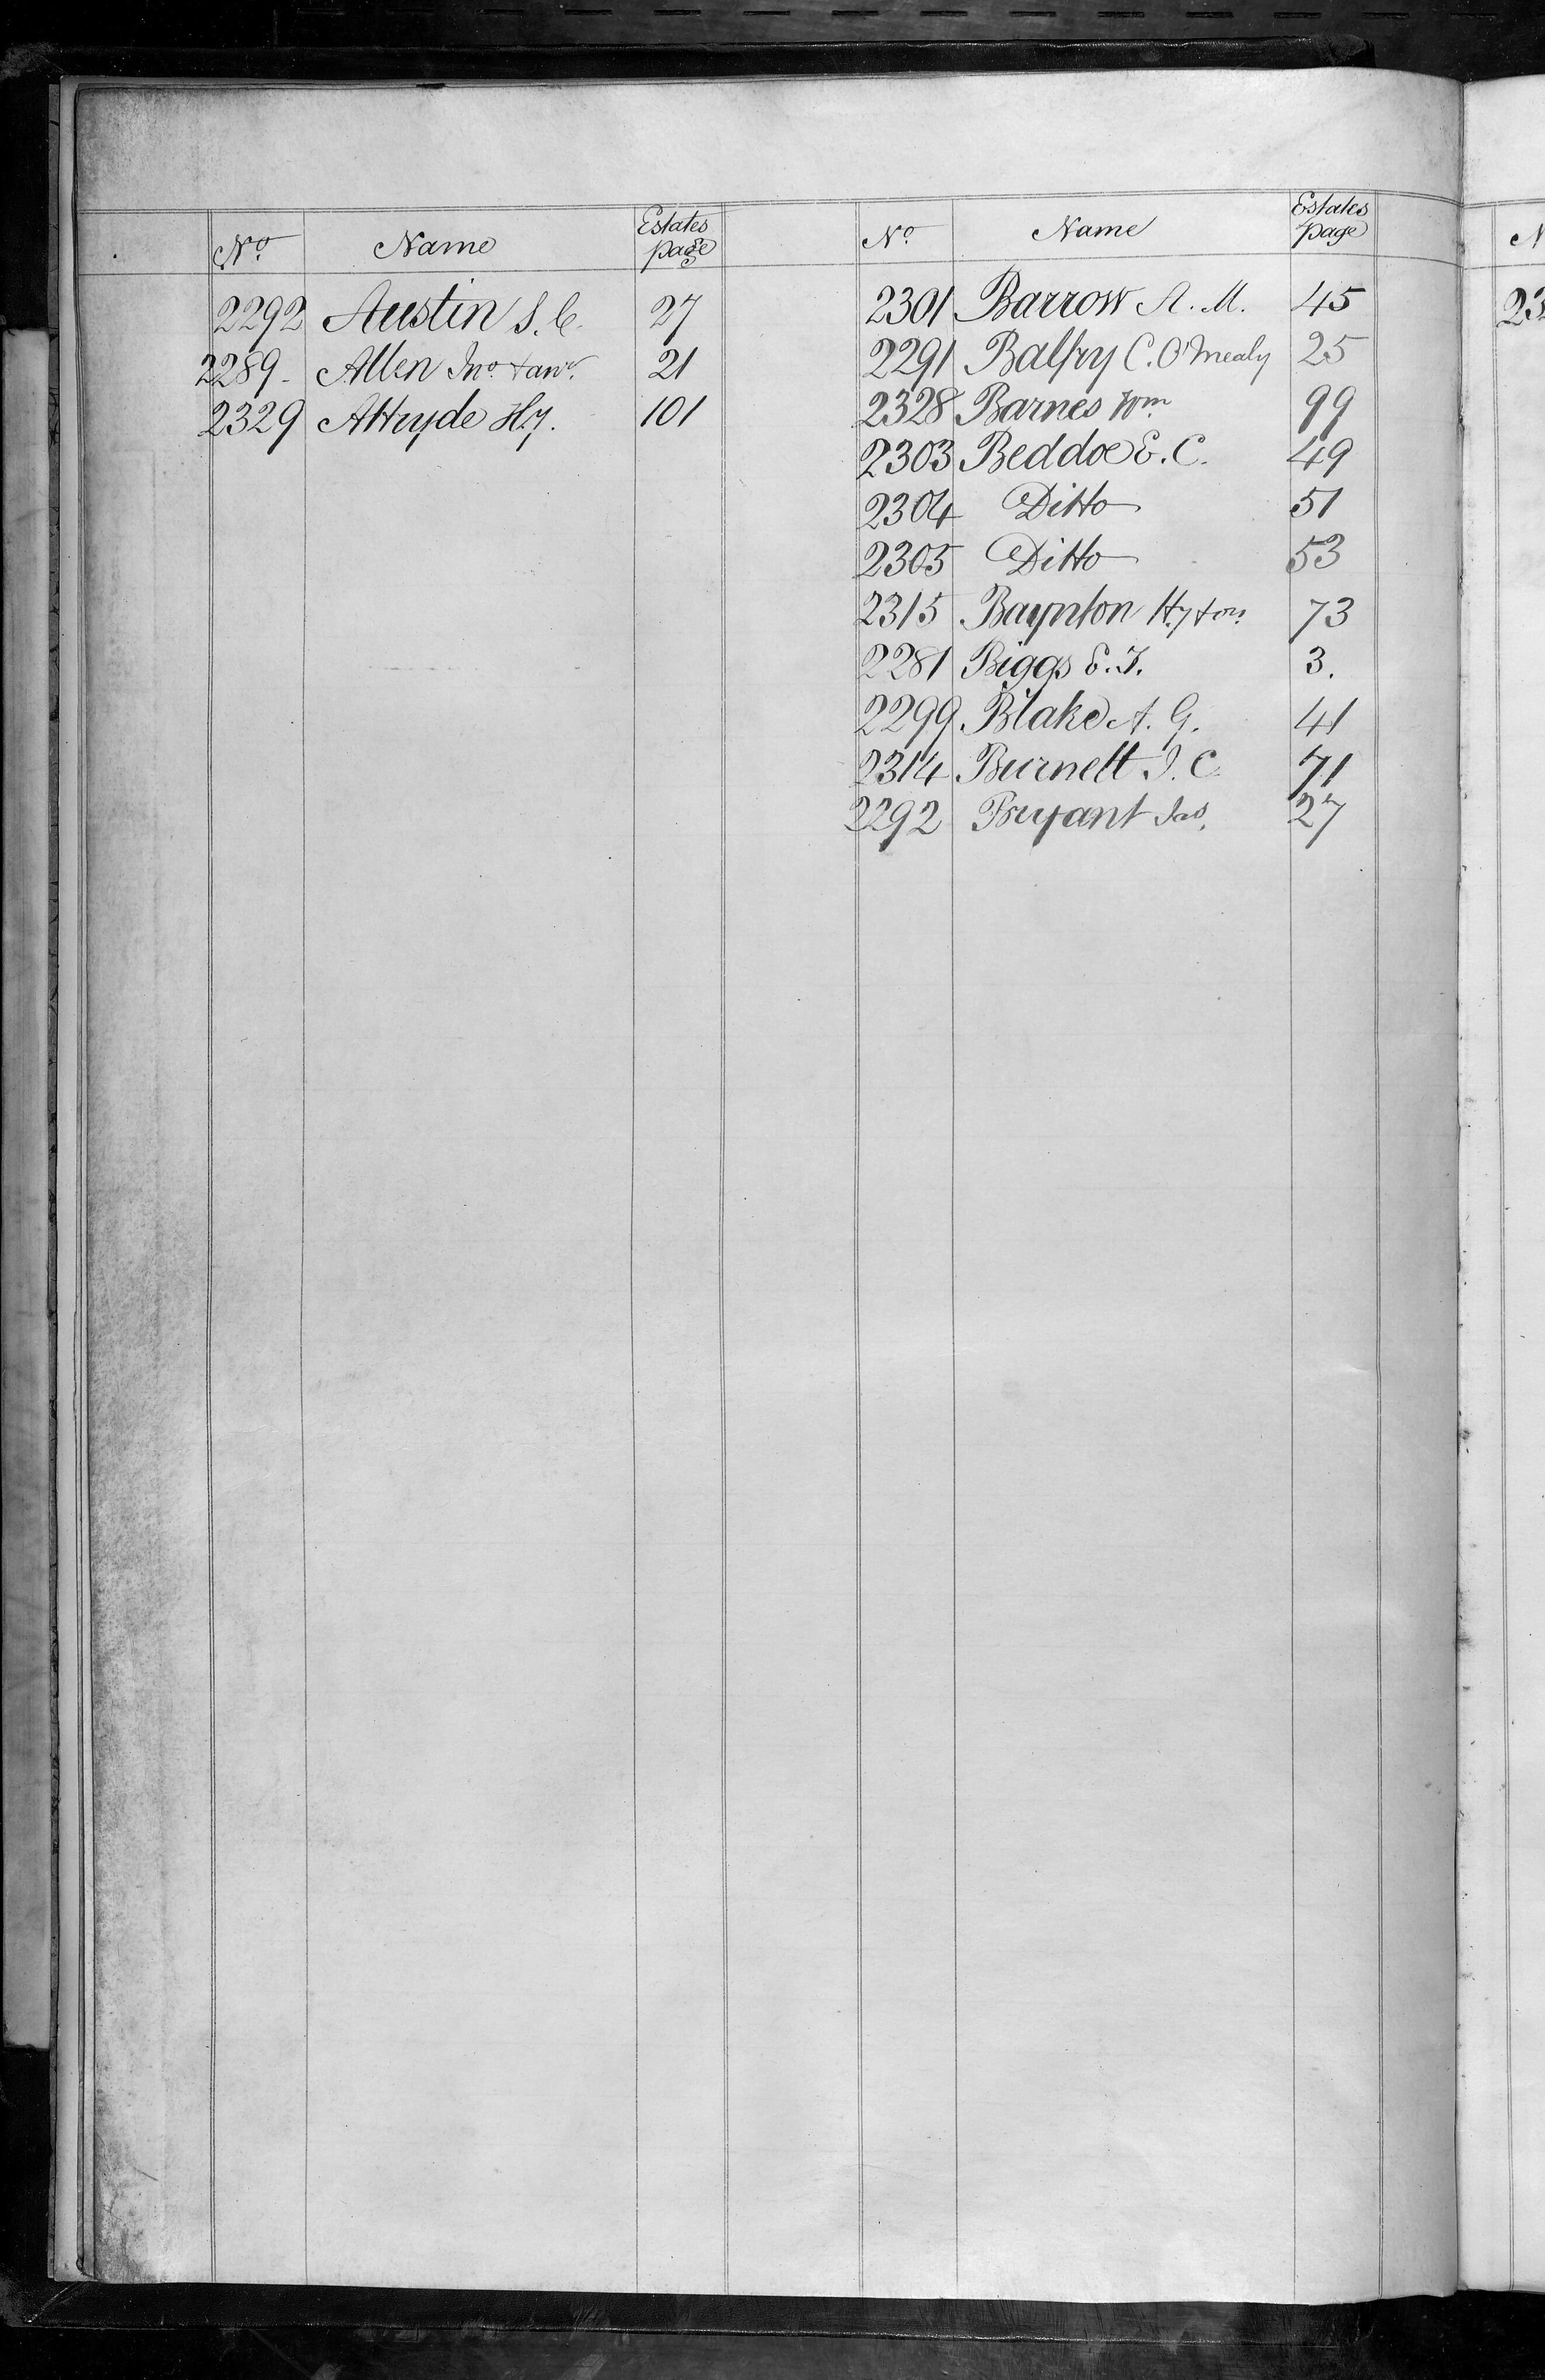 No Name Estates page
2292 Austin S. C. 27
2289 - Allen Jno & anr. 21
2329 Attryde Hy. 101
No Name Estates page
2301 Barrow A. M. 45
2291 Balfry C. O'Mealy 25
2328 Barnes Wm 99
2303 Beddoe E. C. 49
2304 Ditto 51
2305 Ditto 53
2315 Baynton Hy & ors 73
2281 Biggs E. J. 3.
2299 Blake A. G. 41
2314 Burnett J. C. 71
2292 Bryant Jas. 27
N
23